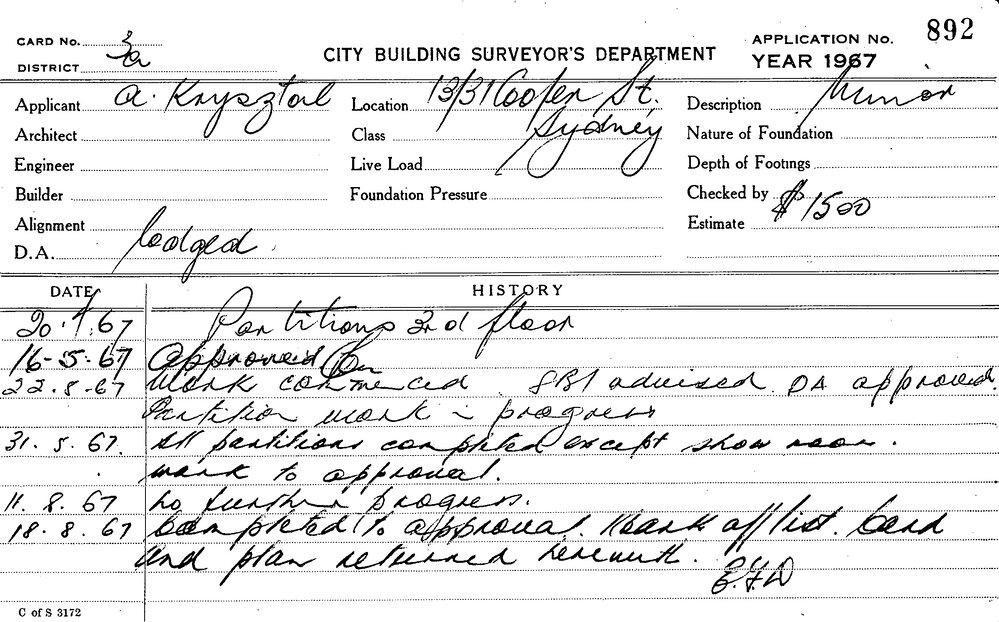 CARD No. 3a
DISTRICT
CITY BUILDING SURVEYOR'S DEPARTMENT
APPLICATION No. 892
YEAR 1967
Applicant A. Krysztal Location 13/31 Cooper St. Description Minor
Architect Class Sydney Nature of Foundation
Engineer Live Load Depth of Footings
Builder Foundation Pressure Checked by
Alignment Estimate $1500
D.A. lodged
DATE HISTORY
20.4.67 Partitions 3rd floor
16-5-67 Approved
22.5.67 Work commenced SBI advised DA approved.
Partition work in progress
31.5.67. All partitions completed except show room.
work to approval.
11.8.67 No further progress.
18.8.67 Completed to approval. Mark off list. Card
and plan returned herewith.
C of S 3172